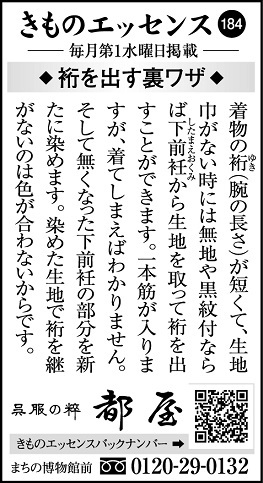 きものエッセンス 184
毎月第1水曜日掲載
◆裄を出す裏ワザ◆
着物の裄(腕の長さ)が短くて、生地
巾がない時には無地や黒紋付なら
ば下前衽から生地を取って裄を出
すことができます。一本筋が入りま
すが、着てしまえばわかりません。
そして無くなった下前衽の部分を新
たに染めます。染めた生地で裄を継
がないのは色が合わないからです。
ゆき
したまえおくみ
呉服の粋 都屋
きものエッセンスバックナンバー➡
まちの博物館前 0120-29-0132